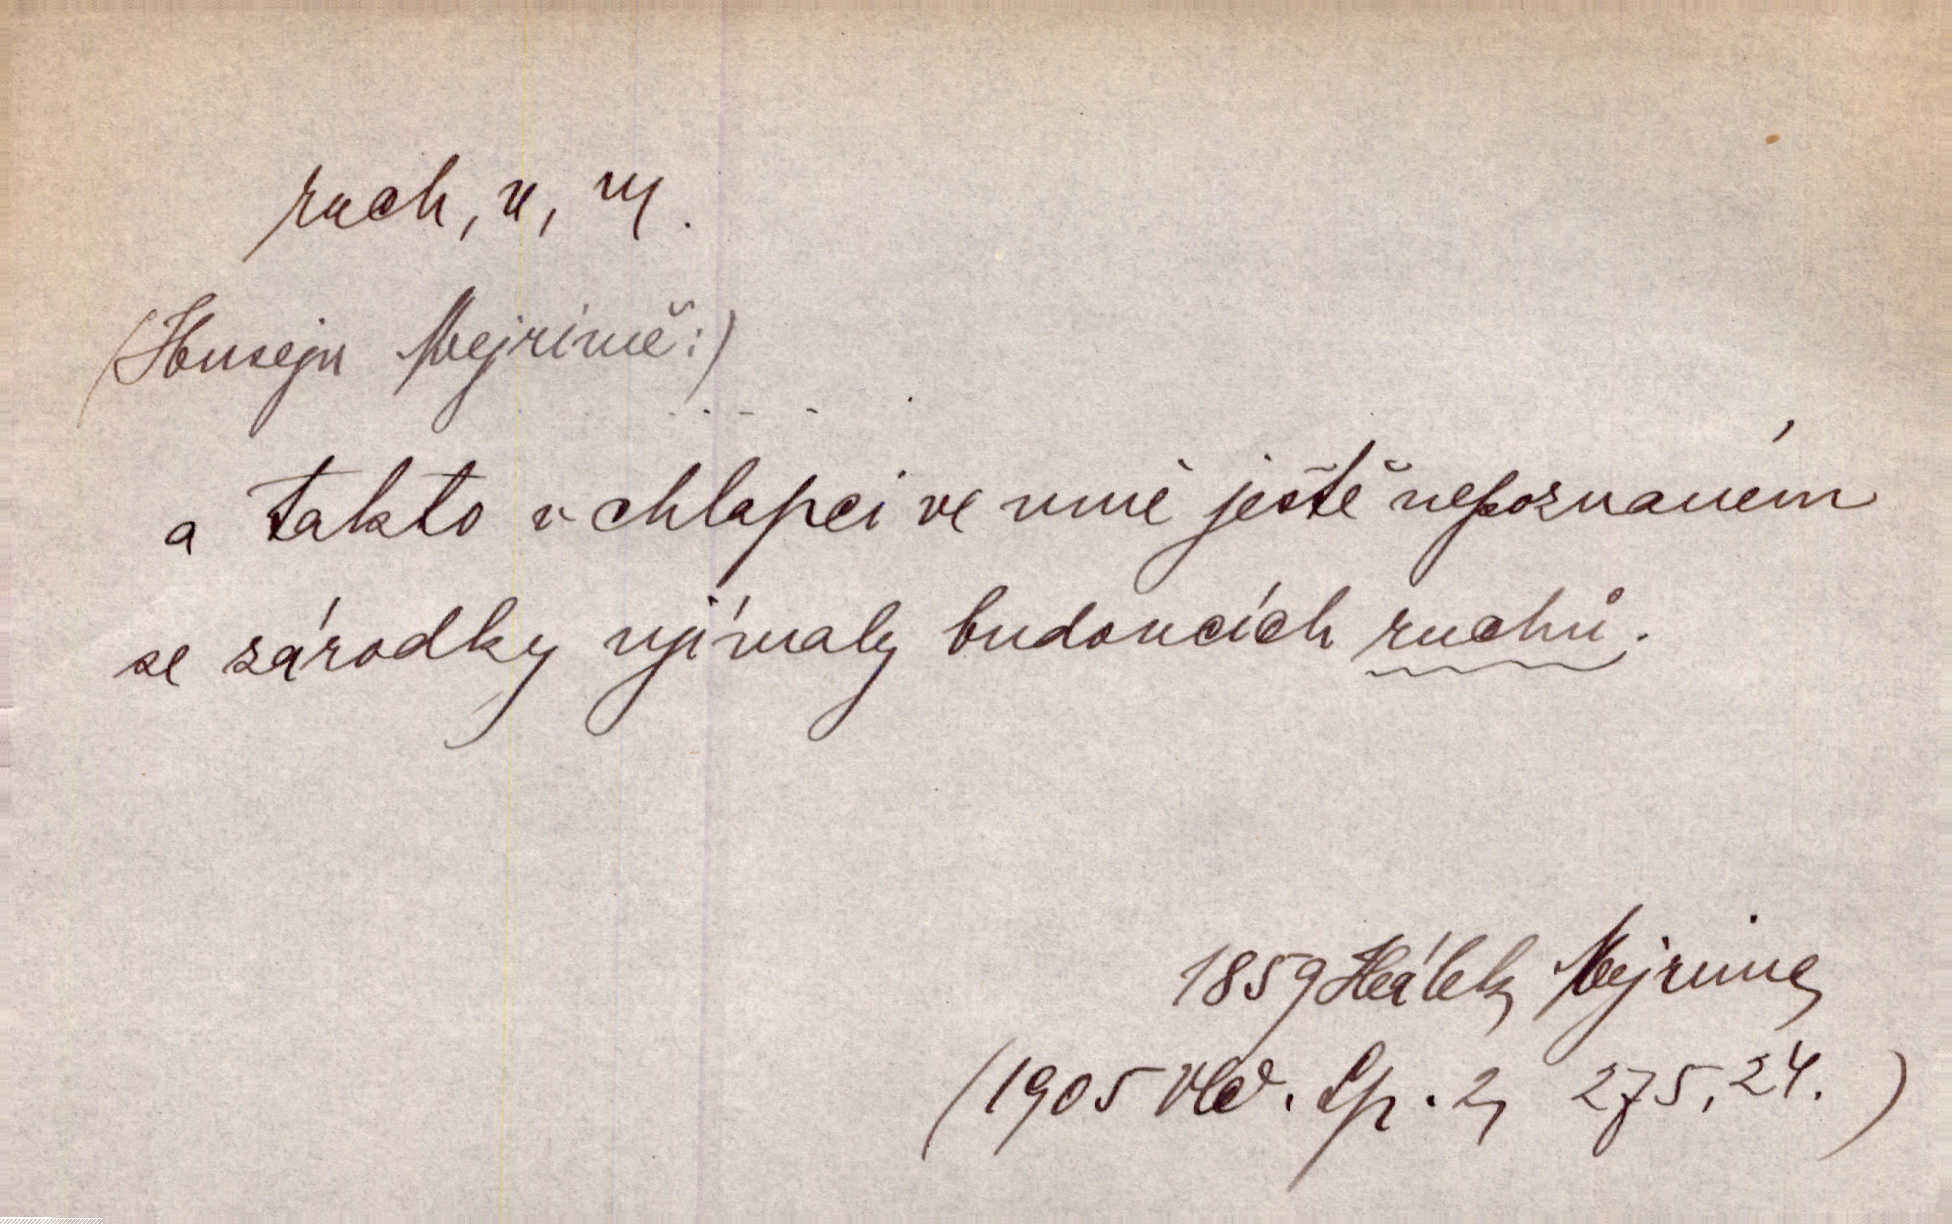 ruch, u, m.
(Husejn Mejrimě:)
a takto v chlapci ve mně ještě nepoznaném
se zárodky ujímaly budoucích ruchů.
1859 Hálek, Mejrima,
(1905 Vld. Sp. 2, 275, 24.)